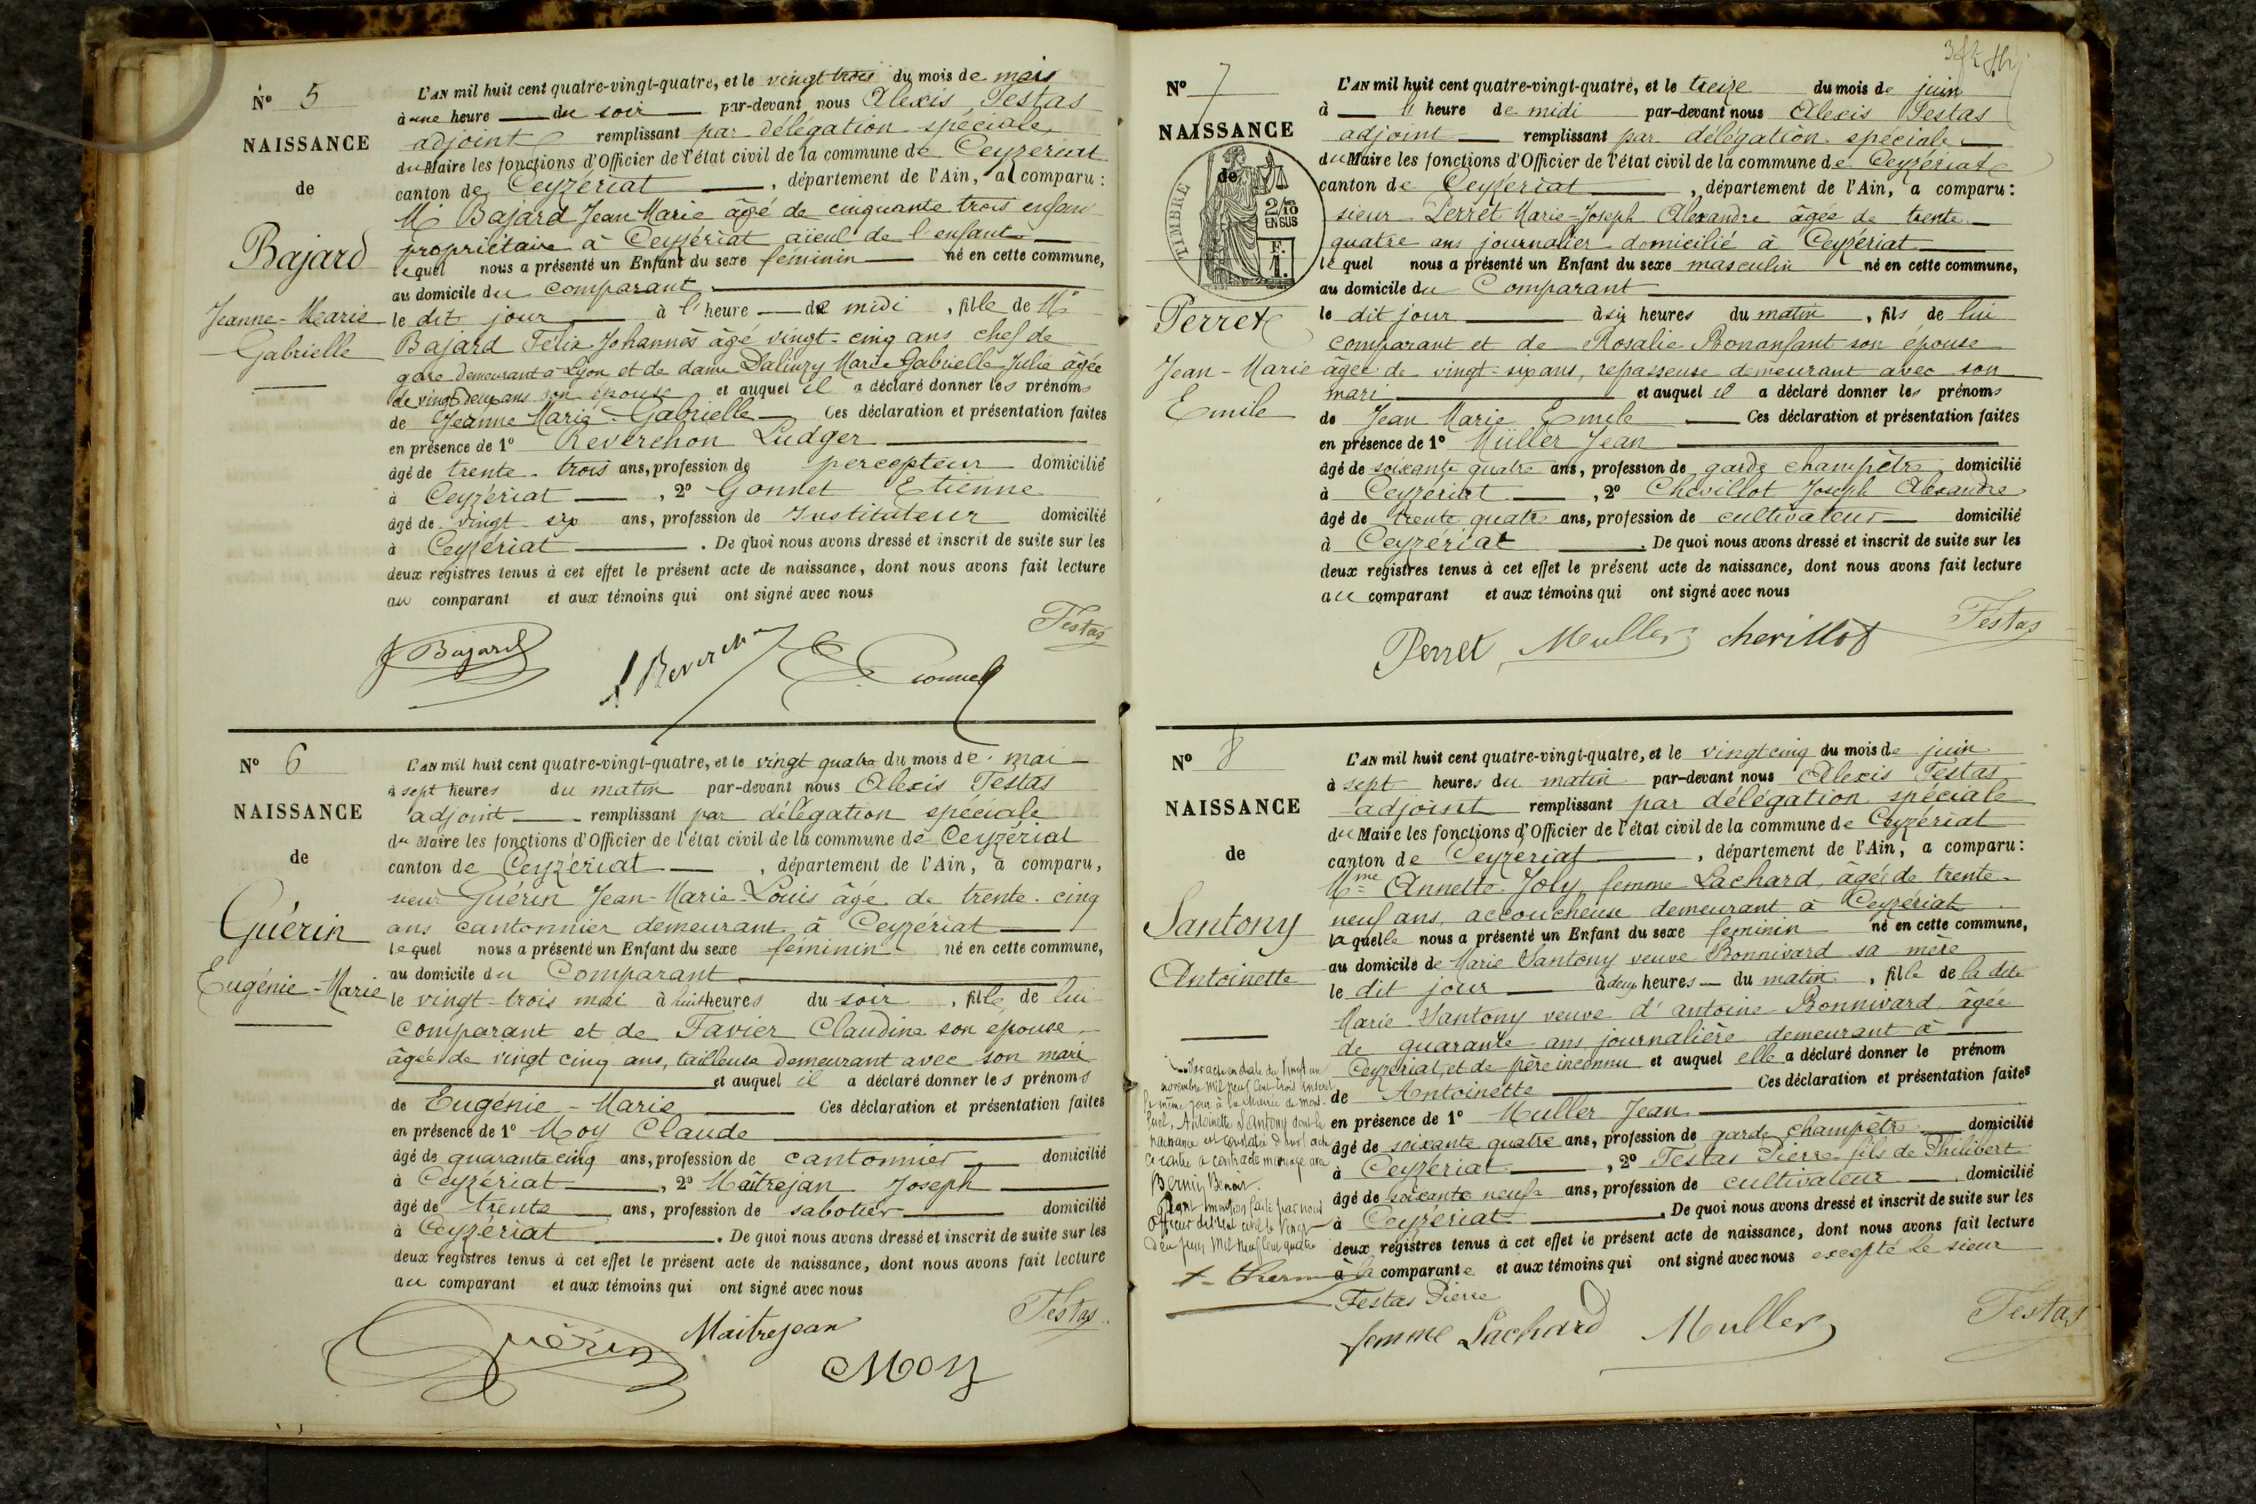 N° 5
NAISSANCE
de
Bajard
Jeanne-Marie
Gabrielle
L'AN mil huit cent quatre-vingt-quatre, et le vingt trois du mois de mai
à une heure du soir par-devant nous Alexis Testas
adjoint remplissant par délégation spéciale
du Maire les fonctions d'Officier de l'état civil de la commune de Ceyzériat
canton de Ceyzériat, département de l'Ain, a comparu :
Mr Bajard Jean Marie âgé de cinquante trois
propriétaire à Ceyzériat aïeul de l'enfant
lequel nous a présenté un Enfant du sexe feminin né en cette commune,
au domicile du comparant
le dit jour à l'heure de midi, fille de Mr
Bajard Felix Johannès âgé vingt-cinq ans chef de
gare demeurant à Lyon et de dame Marie Gabrielle Julie âgée
de vingt deux ans son épouse et auquel il a déclaré donner les prénoms
de Jeanne Marie Gabrielle Ces déclaration et présentation faites
en présence de 1° Reverchon Ludger
âgé de trente-trois ans, profession de percepteur domicilié
à Ceyzériat, 2° Gonnet Etienne
âgé de vingt-six ans, profession de Instituteur domicilié
à Ceyzériat. De quoi nous avons dressé et inscrit de suite sur les
deux registres tenus à cet effet le présent acte de naissance, dont nous avons fait lecture
au comparant et aux témoins qui ont signé avec nous
Testas
J Bajard
N° 6
NAISSANCE
de
Guérin
Eugénie-Marie
L'AN mil huit cent quatre-vingt-quatre, et le vingt quatre du mois de mai
à sept heures du matin par-devant nous Alexis Testas
adjoint remplissant par délégation spéciale
du Maire les fonctions d'Officier de l'état civil de la commune de Ceyzériat
canton de Ceyzériat, département de l'Ain, a comparu,
sieur Guérin Jean-Marie-Louis âgé de trente-cinq
ans cantonnier demeurant à Ceyzériat
lequel nous a présenté un Enfant du sexe feminin né en cette commune,
au domicile du Comparant
le vingt-trois mai à huit heures du soir, fille de lui
comparant et de Favier Claudine son epouse
âgée de vingt cinq ans, tailleuse demeurant avec son mari
et auquel il a déclaré donner les prénoms
de Eugénie-Marie Ces déclaration et présentation faites
en présence de 1° Moy Claude
âgé de quarante cinq ans, profession de cantonnier domicilié
à Ceyzériat, 2° Maîtrejan Joseph
âgé de trente ans, profession de sabotier domicilié
à Ceyzériat. De quoi nous avons dressé et inscrit de suite sur les
deux registres tenus à cet effet le présent acte de naissance, dont nous avons fait lecture
au comparant et aux témoins qui ont signé avec nous
Testas
Guérin Maitrejean
Moy
N° 7
NAISSANCE
de
TIMBRE
2/10
EN SUS
F.
1.
Perret
Jean-Marie
Emile
L'AN mil huit cent quatre-vingt-quatre, et le treize du mois de juin
à l'heure de midi par-devant nous Alexis Testas
adjoint remplissant par délégation spéciale
du Maire les fonctions d'Officier de l'état civil de la commune de Ceyzériat
canton de Ceyzériat, département de l'Ain, a comparu :
sieur Perret Marie-Joseph Alexandre âgée de trente
quatre ans journalier domicilié à Ceyzériat
lequel nous a présenté un Enfant du sexe masculin né en cette commune,
au domicile du Comparant
le dit jour à six heures du matin, fils de lui
comparant et de Rosalie Bonanfant son épouse
âgée de vingt-six ans, repasseuse demeurant avec son
mari et auquel il a déclaré donner les prénoms
de Jean Marie Emile Ces déclaration et présentation faites
en présence de 1° Müller Jean
âgé de soixante quatre ans, profession de garde champêtre domicilié
à Ceyzériat, 2° Chevillot Joseph Alexandre
âgé de trente quatre ans, profession de cultivateur domicilié
à Ceyzériat. De quoi nous avons dressé et inscrit de suite sur les
deux registres tenus à cet effet le présent acte de naissance, dont nous avons fait lecture
au comparant et aux témoins qui ont signé avec nous
Testas
Perret Muller chevillot
N° 8
NAISSANCE
de
Santony
Antoinette
L'AN mil huit cent quatre-vingt-quatre, et le vingt cinq du mois de juin
à sept heures du matin par-devant nous Alexis Testas
adjoint remplissant par délégation spéciale
du Maire les fonctions d'Officier de l'état civil de la commune de Ceyzériat
canton de Ceyzériat, département de l'Ain, a comparu :
Mme Annette Joly femme Lachard, âgée de trente
neuf ans, accoucheuse demeurant à Ceyzériat
laquelle nous a présenté un Enfant du sexe feminin né en cette commune,
au domicile de Marie Santony veuve Bonnivard sa mère
le dit jour à deux heures du matin, fille de la dite
Marie Santony veuve d'antoine Bonnivard âgée
de quarante ans journalière demeurant à
Ceyzériat, et de père inconnu et auquel elle a déclaré donner le prénom
de Antoinette Ces déclaration et présentation faites
en présence de 1° Muller Jean
âgé de soixante quatre ans, profession de garde champêtre domicilié
à Ceyzériat, 2° Testas Pierre fils de Philibert
âgé de soixante neuf ans, profession de cultivateur domicilié
à Ceyzériat. De quoi nous avons dressé et inscrit de suite sur les
deux registres tenus à cet effet le présent acte de naissance, dont nous avons fait lecture
à la comparante et aux témoins qui ont signé avec nous excepté le sieur
Testas Pierre
femme Lachard Muller Testas
novembre mil neuf cent trois inscrit
le même jour à la Mairie de
Antoinette Santony dont la
naissance est constatée dans l'acte
ci contre a contracté mariage avec
Officier de l'état civil le vingt
deux juin mil neuf cent quatre